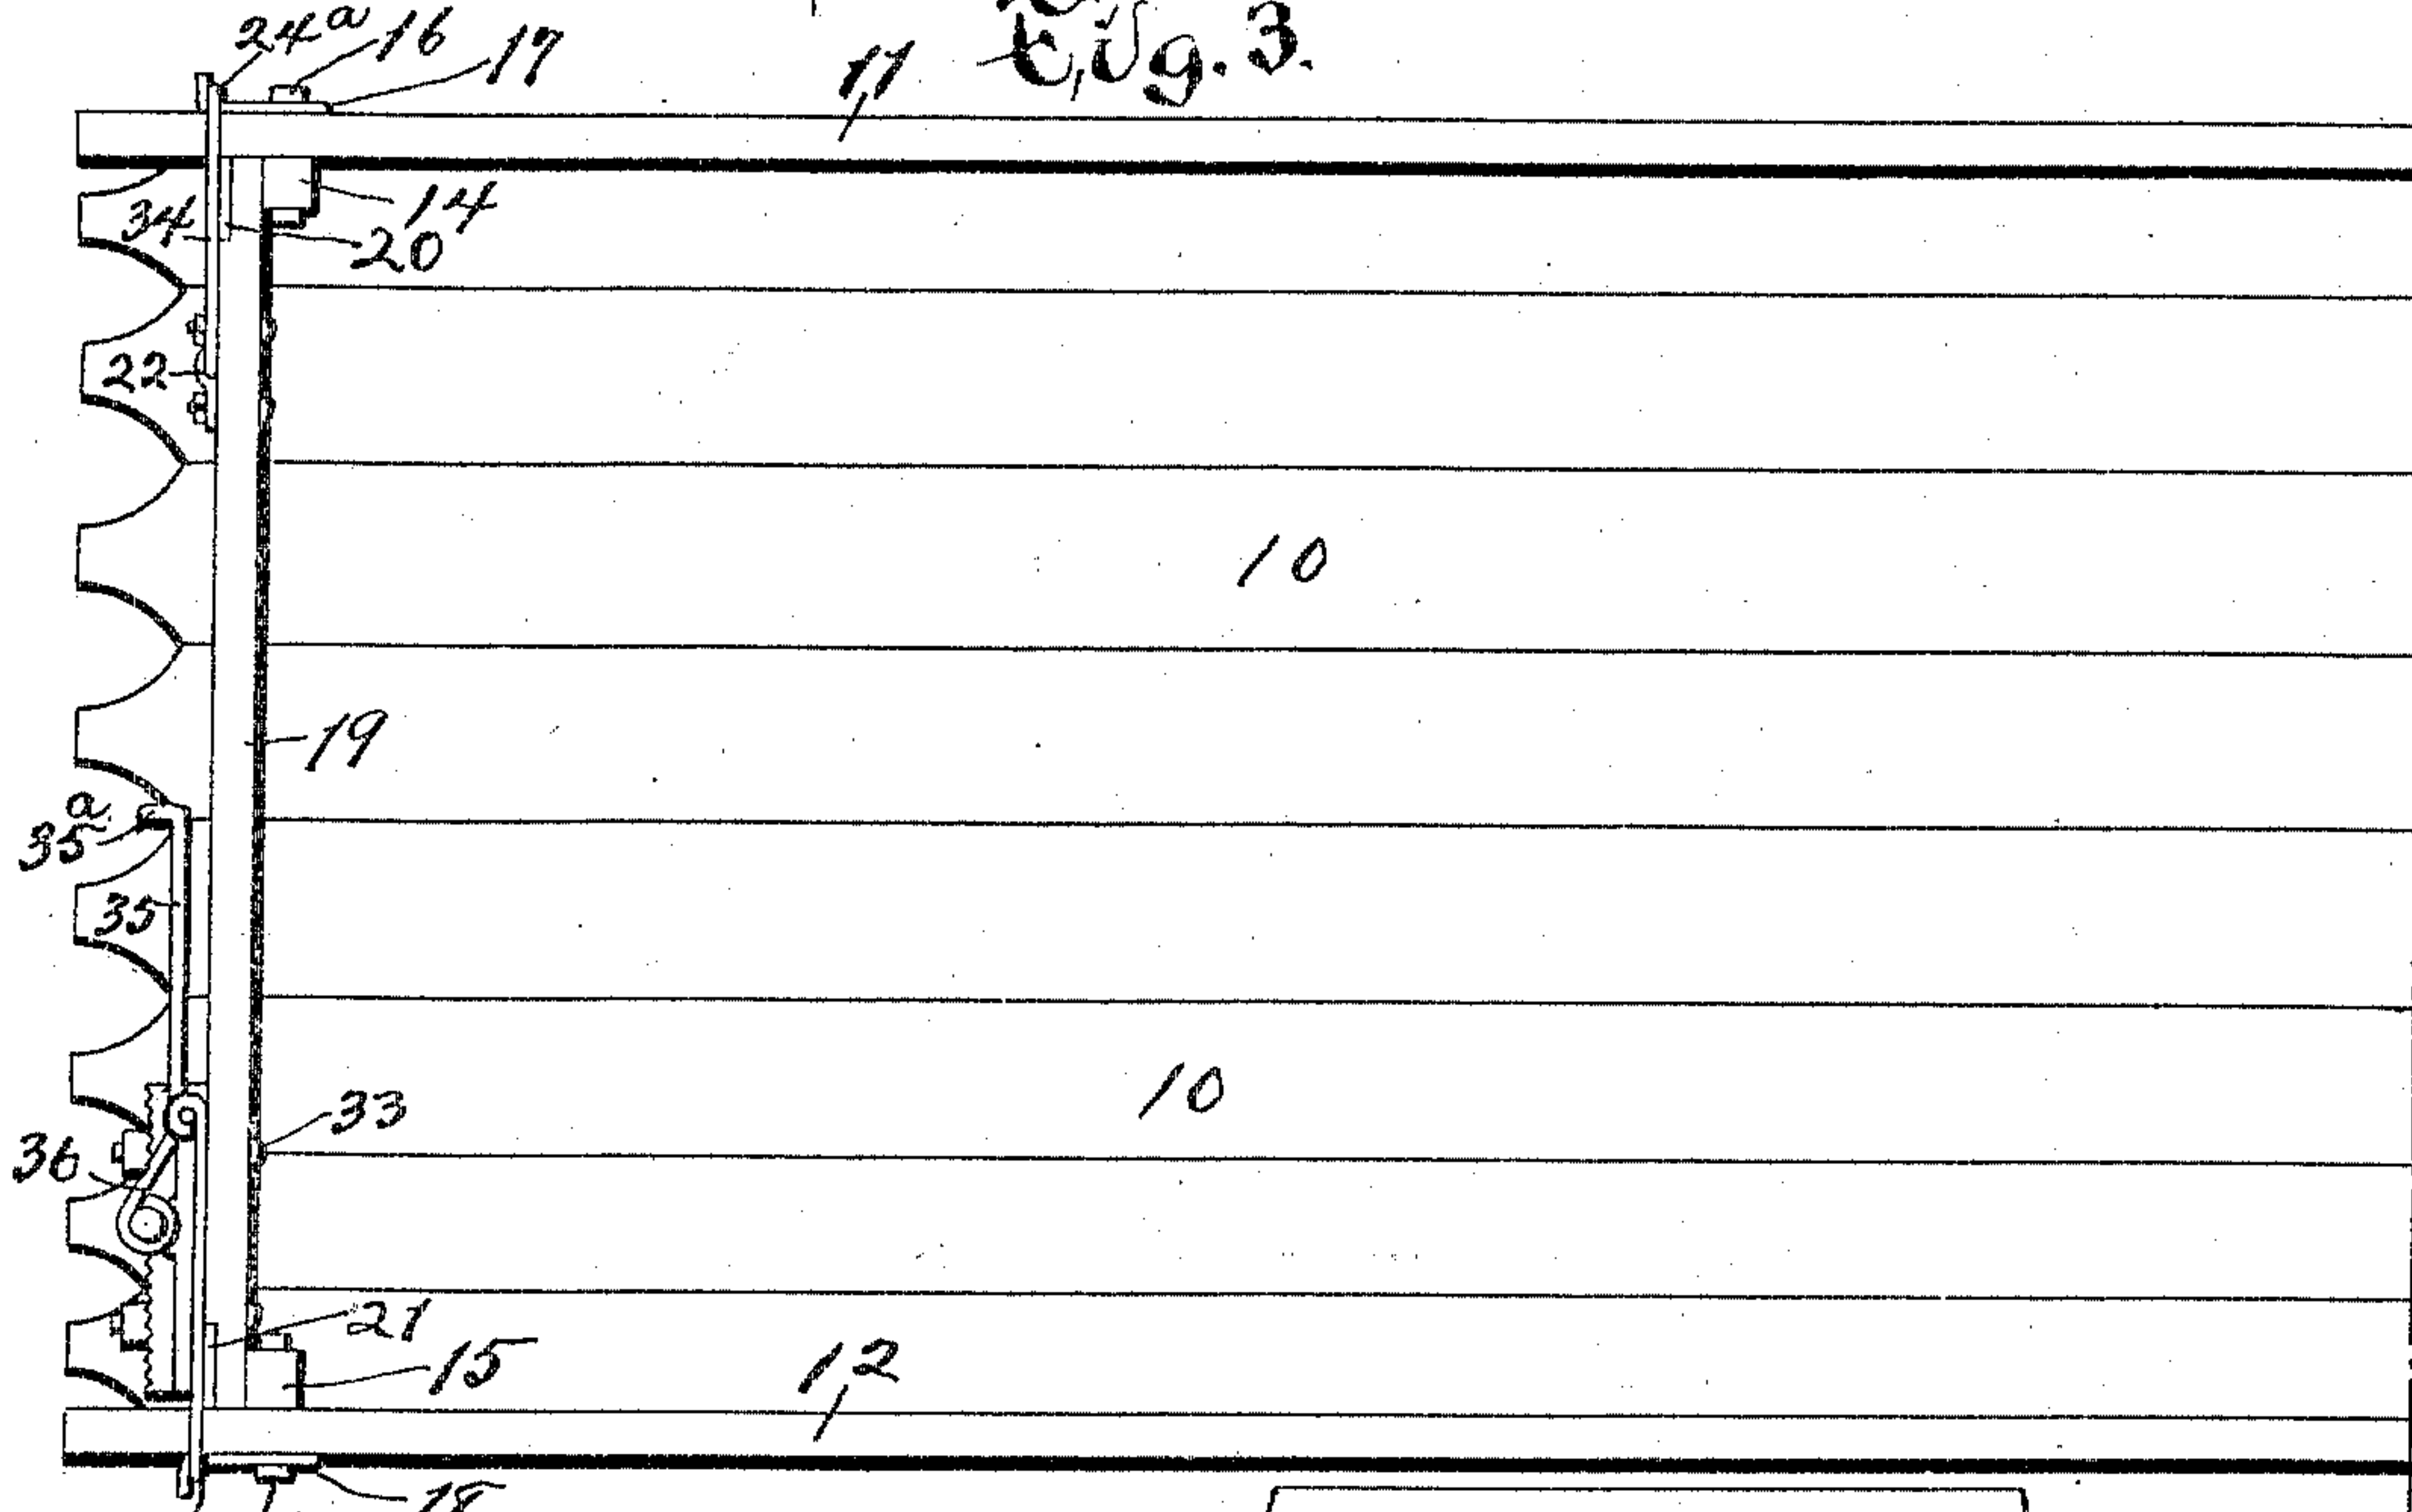 Fig. 3.
24a
16
17
11
14
34
20
22
10
19
35a
35
10
33
36
21
15
12
18